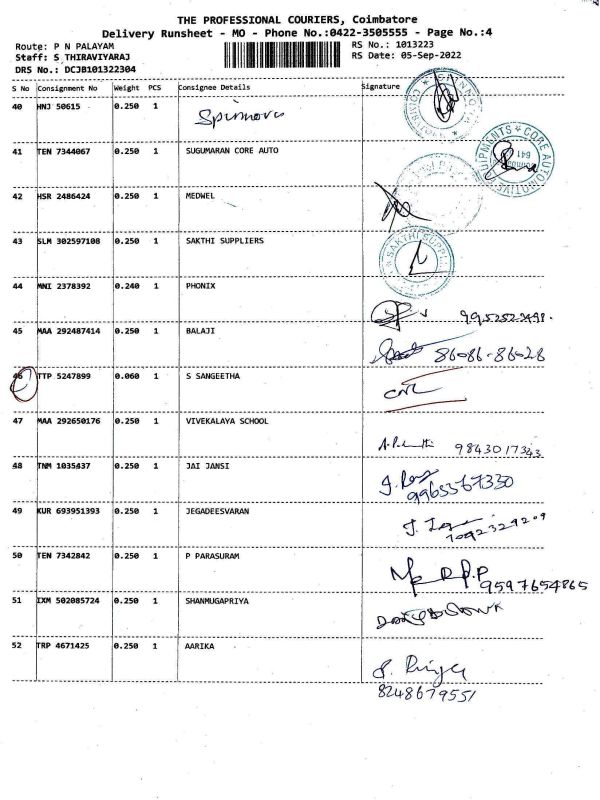 THE PROFESSIONAL COURIERS, Coimbatore
Delivery Runsheet - MO - Phone No.:0422-3505555 - Page No.:4
Route: P N PALAYAM RS No.: 1013223
Staff: S THIRAVIYARAJ RS Date: 05-Sep-2022
DRS No.: DCJB101322304
S No Consignment No Weight PCS Consignee Details Signature
40 HNJ 50615 0.250 1
41 TEN 7344067 0.250 1 SUGUMARAN CORE AUTO
CORE AUTOMOTIVE EQUIPMENTS
641
42 HSR 2486424 0.250 1 MEDWEL
43 SLM 302597108 0.250 1 SAKTHI SUPPLIERS
SAKTHI SUPPLI
44 MNI 2378392 0.240 1 PHONIX
45 MAA 292487414 0.250 1 BALAJI
86086-86028
46 TTP 5247899 0.060 1 S SANGEETHA
47 MAA 292650176 0.250 1 VIVEKALAYA SCHOOL
9843017343
48 TNM 1035437 0.250 1 JAI JANSI
9965367330
49 KUR 693951393 0.250 1 JEGADEESVARAN
50 TEN 7342842 0.250 1 P PARASURAM
9597654865
51 IXM 502085724 0.250 1 SHANMUGAPRIYA
52 TRP 4671425 0.250 1 AARIKA
8248679551